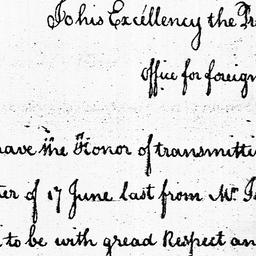 To his Excellency the Pr
Office for foreign
have the Honor of transmitti
ter of 17 June last from Mr.
to be with gread Respect an